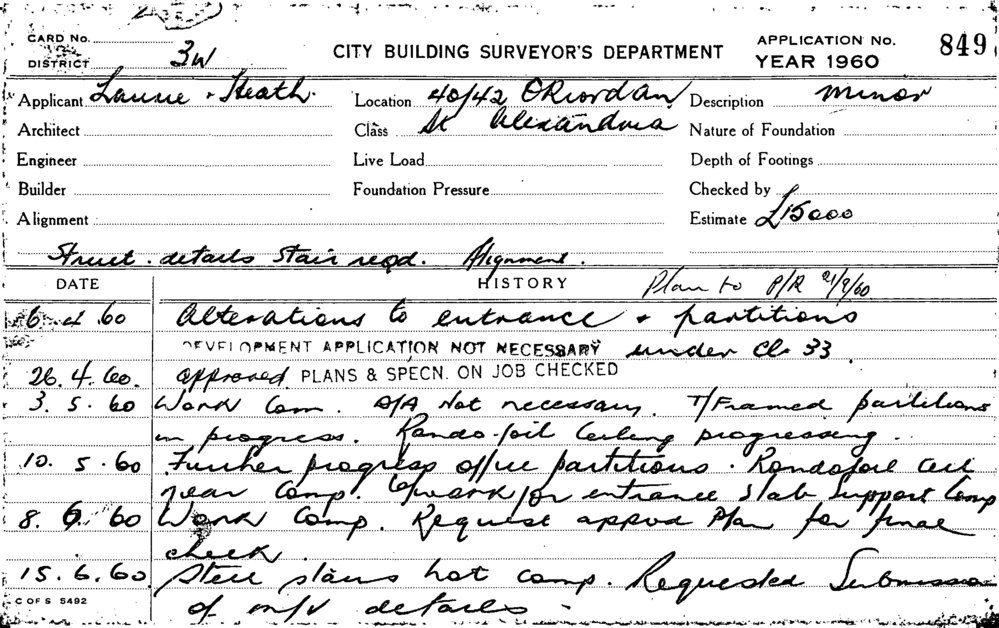 CARD No.
DISTRICT 3W
CITY BUILDING SURVEYOR'S DEPARTMENT
APPLICATION No. 849
YEAR 1960
Applicant Laurie & Heath. Location 40/42 O'Riordan Description Minor
Architect Class St Alexandria Nature of Foundation
Engineer Live Load Depth of Footings
Builder Foundation Pressure Checked by
Alignment Estimate £15000
Struct. details Stair reqd. Alignment.
DATE HISTORY Plan to P/R 21/9/60
6 4 60 Alterations to entrance & partitions
DEVELOPMENT APPLICATION NOT NECESSARY under Cl. 33
26. 4. 60. approved PLANS & SPECN. ON JOB CHECKED
3. 5. 60 Work Com. D/A Not necessary. T/Framed partitions
in progress. Rando-foil Ceiling progressing.
10. 5. 60 Further progress office partitions. Rondofoil Ceil
near Comp. for entrance Slab Support Comp
8. 6. 60 Work Comp. Request approd Plan for final
check.
15. 6. 60. Steel stairs not comp. Requested Submission
of m/v details -
C OF S 5492